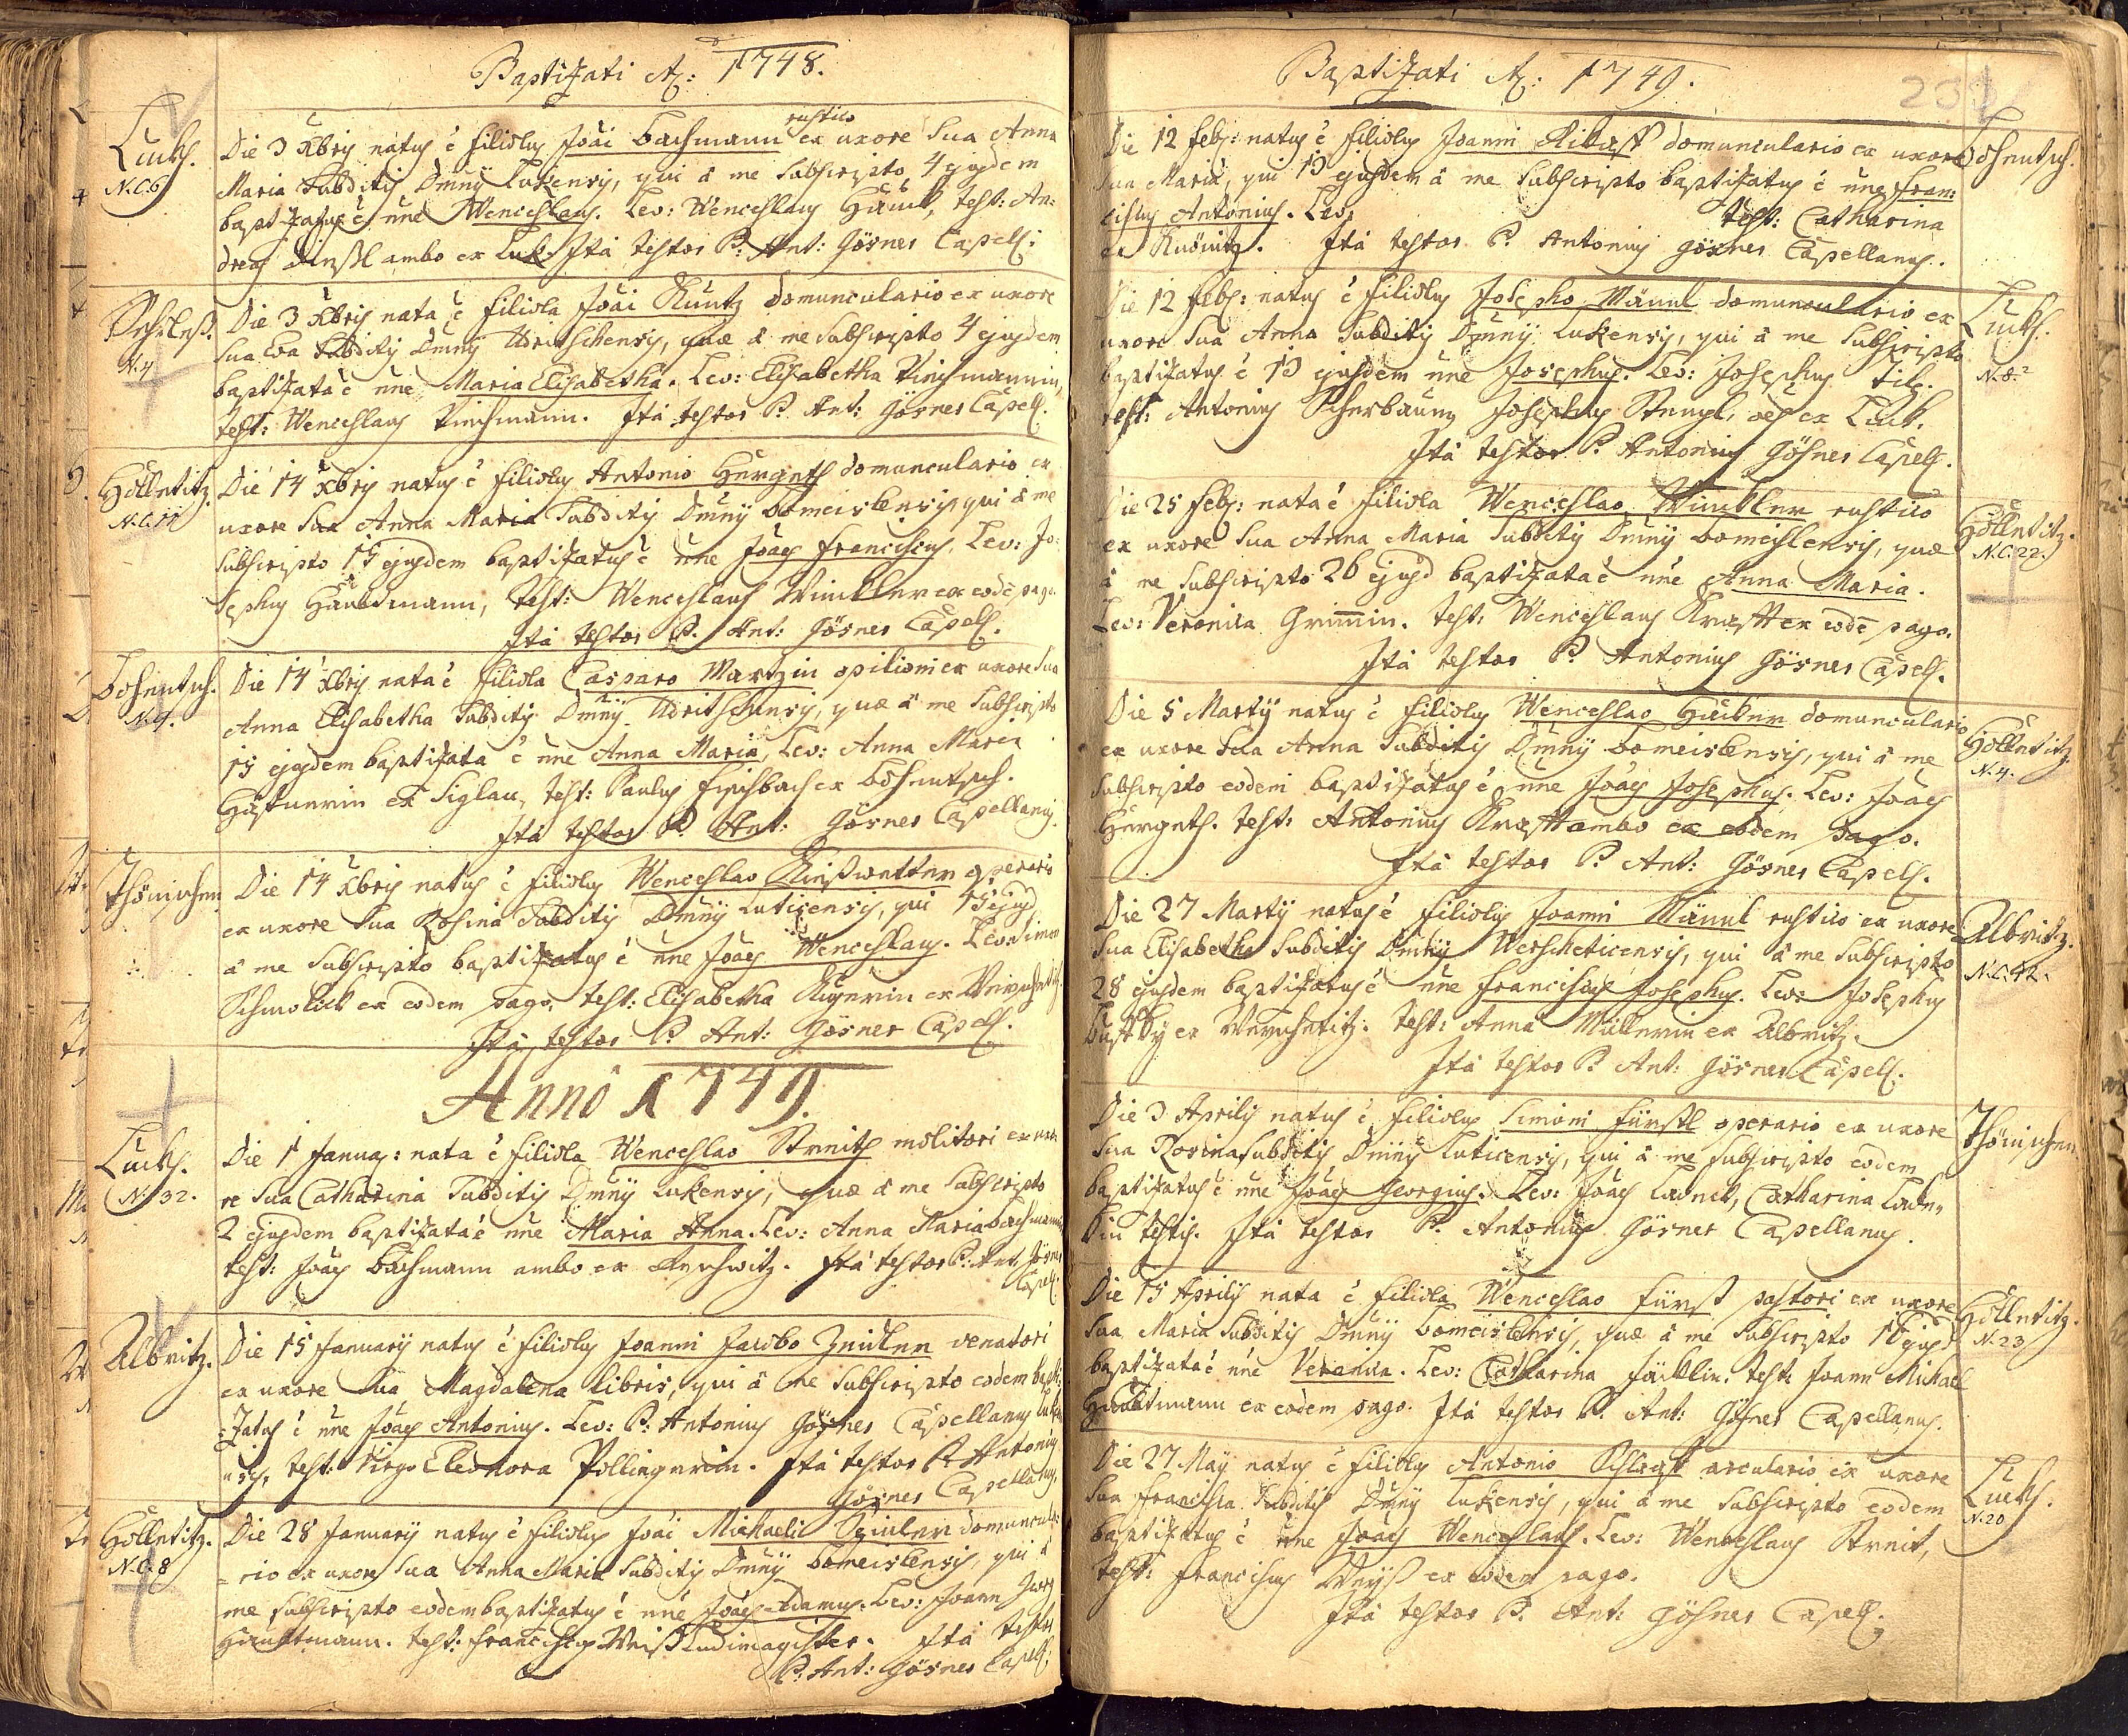 Baptizati Aõ: 1748.
Luck.
N.C. 6
rustico
Die 3 Xbris natus ẽ filiolus Joãi Bachmann ex uxore sua Anna
Maria Subditis Dmñy Lukensis, qui â me Subscripto 4 ejusdem
baptizatus ẽ nñe Wenceslaus. Lev: Wenceslaus Hauk, test: An:
dreas ambo ex Luk. Itâ testor P. Ant: Gösner Capell:
N. 4
Die 3 Xbris nata ẽ filiola Joãi Kuntz domunculario ex uxore
sua Eva Subditis Dmñy Udritschensis, quæ â me Subscripto 4 ejusdem
baptizata ẽ nñe Maria Elisabetha. Lev: Elisabetha Pirschmannin,
test: Wenceslaus Pirschmann. Itâ testor P. Ant: Gösner Capell.
Höllntitz.
N.C. 11
Die 14 Xbris natus ẽ filiolus Antonio Hergeth domunculario ex
uxore sua Anna Maria Subditis Dmñy Domeislensis qui â me
Subscripto 15 ejusdem baptizatus ẽ nñe Joães Franciscus. Lev: Jo:
sephus Haubtmann, test: Wenceslaus Winckler ex eodẽ pago.
Itâ testor P. Ant: Gösner Capell.
Bohentsch.
N. 9.
Die 14 Xbris nata ẽ filiola Casparo Martzin opilioni ex uxore sua
Anna Elisabetha Subditis Dmñy Udritschensis, quæ â me Subscripto
15 ejusdem baptizata ẽ nñe Anna Maria, Lev: Anna Maria
ex Siglau, test: Paulus Fischbach ex Bohentsch.
Itâ testor P. Ant: Gösner Capellanus.
Thönischen
Die 14 Xbris natus ẽ filiolus Wenceslao operario
ex uxore sua Rosina Subditis Dmñy Luticensis, qui 15 ejusd
â me Subscripto baptizatus ẽ nñe Joães Wenceslaus. Lev: Simon
Schmolick ex eodem pago, test: Elisabetha
Itâ testor P. Ant: Gösner Capell.
Annô 1749.
Luck.
N. 32.
Die 1 Januar: nata ẽ filiola Wenceslao Strnith molitori ex uxo
re sua Catharina Subditis Dmñy Lukensis, quæ â me Subscripto
2 ejusdem baptizata ẽ nñe Maria Anna. Lev: Anna Maria Bachmannin
test: Joães Bachmann ambo ex Itâ testor P. Ant: Gösner
Capell.
Albritz.
Die 15 January natus ẽ filiolus Joanni Jacobo Zeidler venatori
ex uxore sua Magdalena libris, qui â me Subscripto eodem bapti:
:zatus ẽ nñe Joães Antonius. Lev: P. Antonius Gösner Capellanus Luke
nsis, test: Virgo Eleonora Pollingerin. Itâ testor P. Antonius
Gösner Capellanus.
Höllntitz.
N.C. 8
Die 28 January natus ẽ filiolus Joãi Michaeli Domuncula:
=rio ex uxore sua Anna Maria Subditis Dmñy Domeislensis, qui â
me Subscripto eodem baptizatus ẽ nñe Joães Adamus. Lev: Joann Georg
Haubtmann. test: Franciscus Weiß Ludimagister. Itâ testor
P. Ant: Gösner Capell:
Baptizati Aõ: 1749.
Bohentsch.
Die 12 Feb: natus ẽ filiolus Joanni domunculario ex uxore
sua Maria, qui 13 ejusdem â me Subscripto baptizatus ẽ nñe Fran:
ciscus Antonius. Lev: test: Catharina
Itâ testor P. Antonius Gösner Capellanus.
Luck.
N. 8.
Die 12 Feb: natus ẽ filiolus Josepho Männl domunculario ex
uxore sua Anna Subditis Dmñy Lukensis, qui â me Subscripto
baptizatus ẽ 13 ejusdem nñe Josephus. Lev: Josephus
test: Antonius Scherbaum, Josephus Stengl, oẽs ex Luck.
Itâ testor P. Antonius Gösner Capell.
Höllntitz.
N.C. 22.
Die 25 Feb: nata ẽ filiola Wenceslao Winckler rustico
ex uxore sua Anna Maria Subditis Dmñy Domeislensis, quæ
â me Subscripto 26 ejusd baptizata ẽ nñe Anna Maria.
Lev: Veronica Grimmin. test: Wenceslaus Krafft ex eodẽ pago.
Itâ testor P. Antonius Gösner Capell.
Höllntitz.
N. 4.
Die 5 Marty natus ẽ filiolus Wenceslao Häcker domunculario
ex uxore sua Anna Subditis Dmñy Domeislensis, qui â me
Subscripto eodem baptizatus ẽ nñe Joães Josephus. Lev: Joães
Hergeth. test: Antonius Krafft ambo ex eodem pago.
Itâ testor P. Ant: Gösner Capell.
Albritz.
N.C. 42.
Die 27 Marty natus ẽ filiolus Joanni Männl rustico ex uxore
sua Elisabetha Subditis Dmñy Werscheticensis, qui â me Subscripto
28 ejusdem baptizatus ẽ nñe Franciscus Josephus. Lev: Josephus
test: Anna Müllerin ex Albritz.
Itâ testor P. Ant: Gösner Capell.
Thönischen
Die 3 Aprilis natus ẽ filiolus Simoni Fürstl operario ex uxore
sua Rosina subditis Dmñy Luticensis, qui â me subscripto eodem
baptizatus ẽ nñe Joães Georgius. Lev: Joães Catharina
testis. Itâ testor P. Antonius Gösner Capellanus.
Höllntitz.
N. 23
Die 15 Aprilis nata ẽ filiola Wenceslao Fürst pastori ex uxore
sua Maria Subditis Dmñy Domeislensis, quæ â me Subscripto 16 ejusd
baptizata ẽ nñe Veronica. Lev: Catharina Jäcklin, test: Joann Michael
Haubtmann ex eodem pago. Itâ testor P. Ant: Gösner Capellanus.
Luck.
N. 20
Die 27 May natus ẽ filiolus Antonio arculario ex uxore
sua Francisca Subditis Dmñy Lukensis, qui â me Subscripto eodem
baptizatus ẽ nñe Joães Wenceslaus. Lev: Wenceslaus Strnit,
test: Franciscus Weyß ex eodem pago.
Itâ testor P. Ant: Gösner Capell.